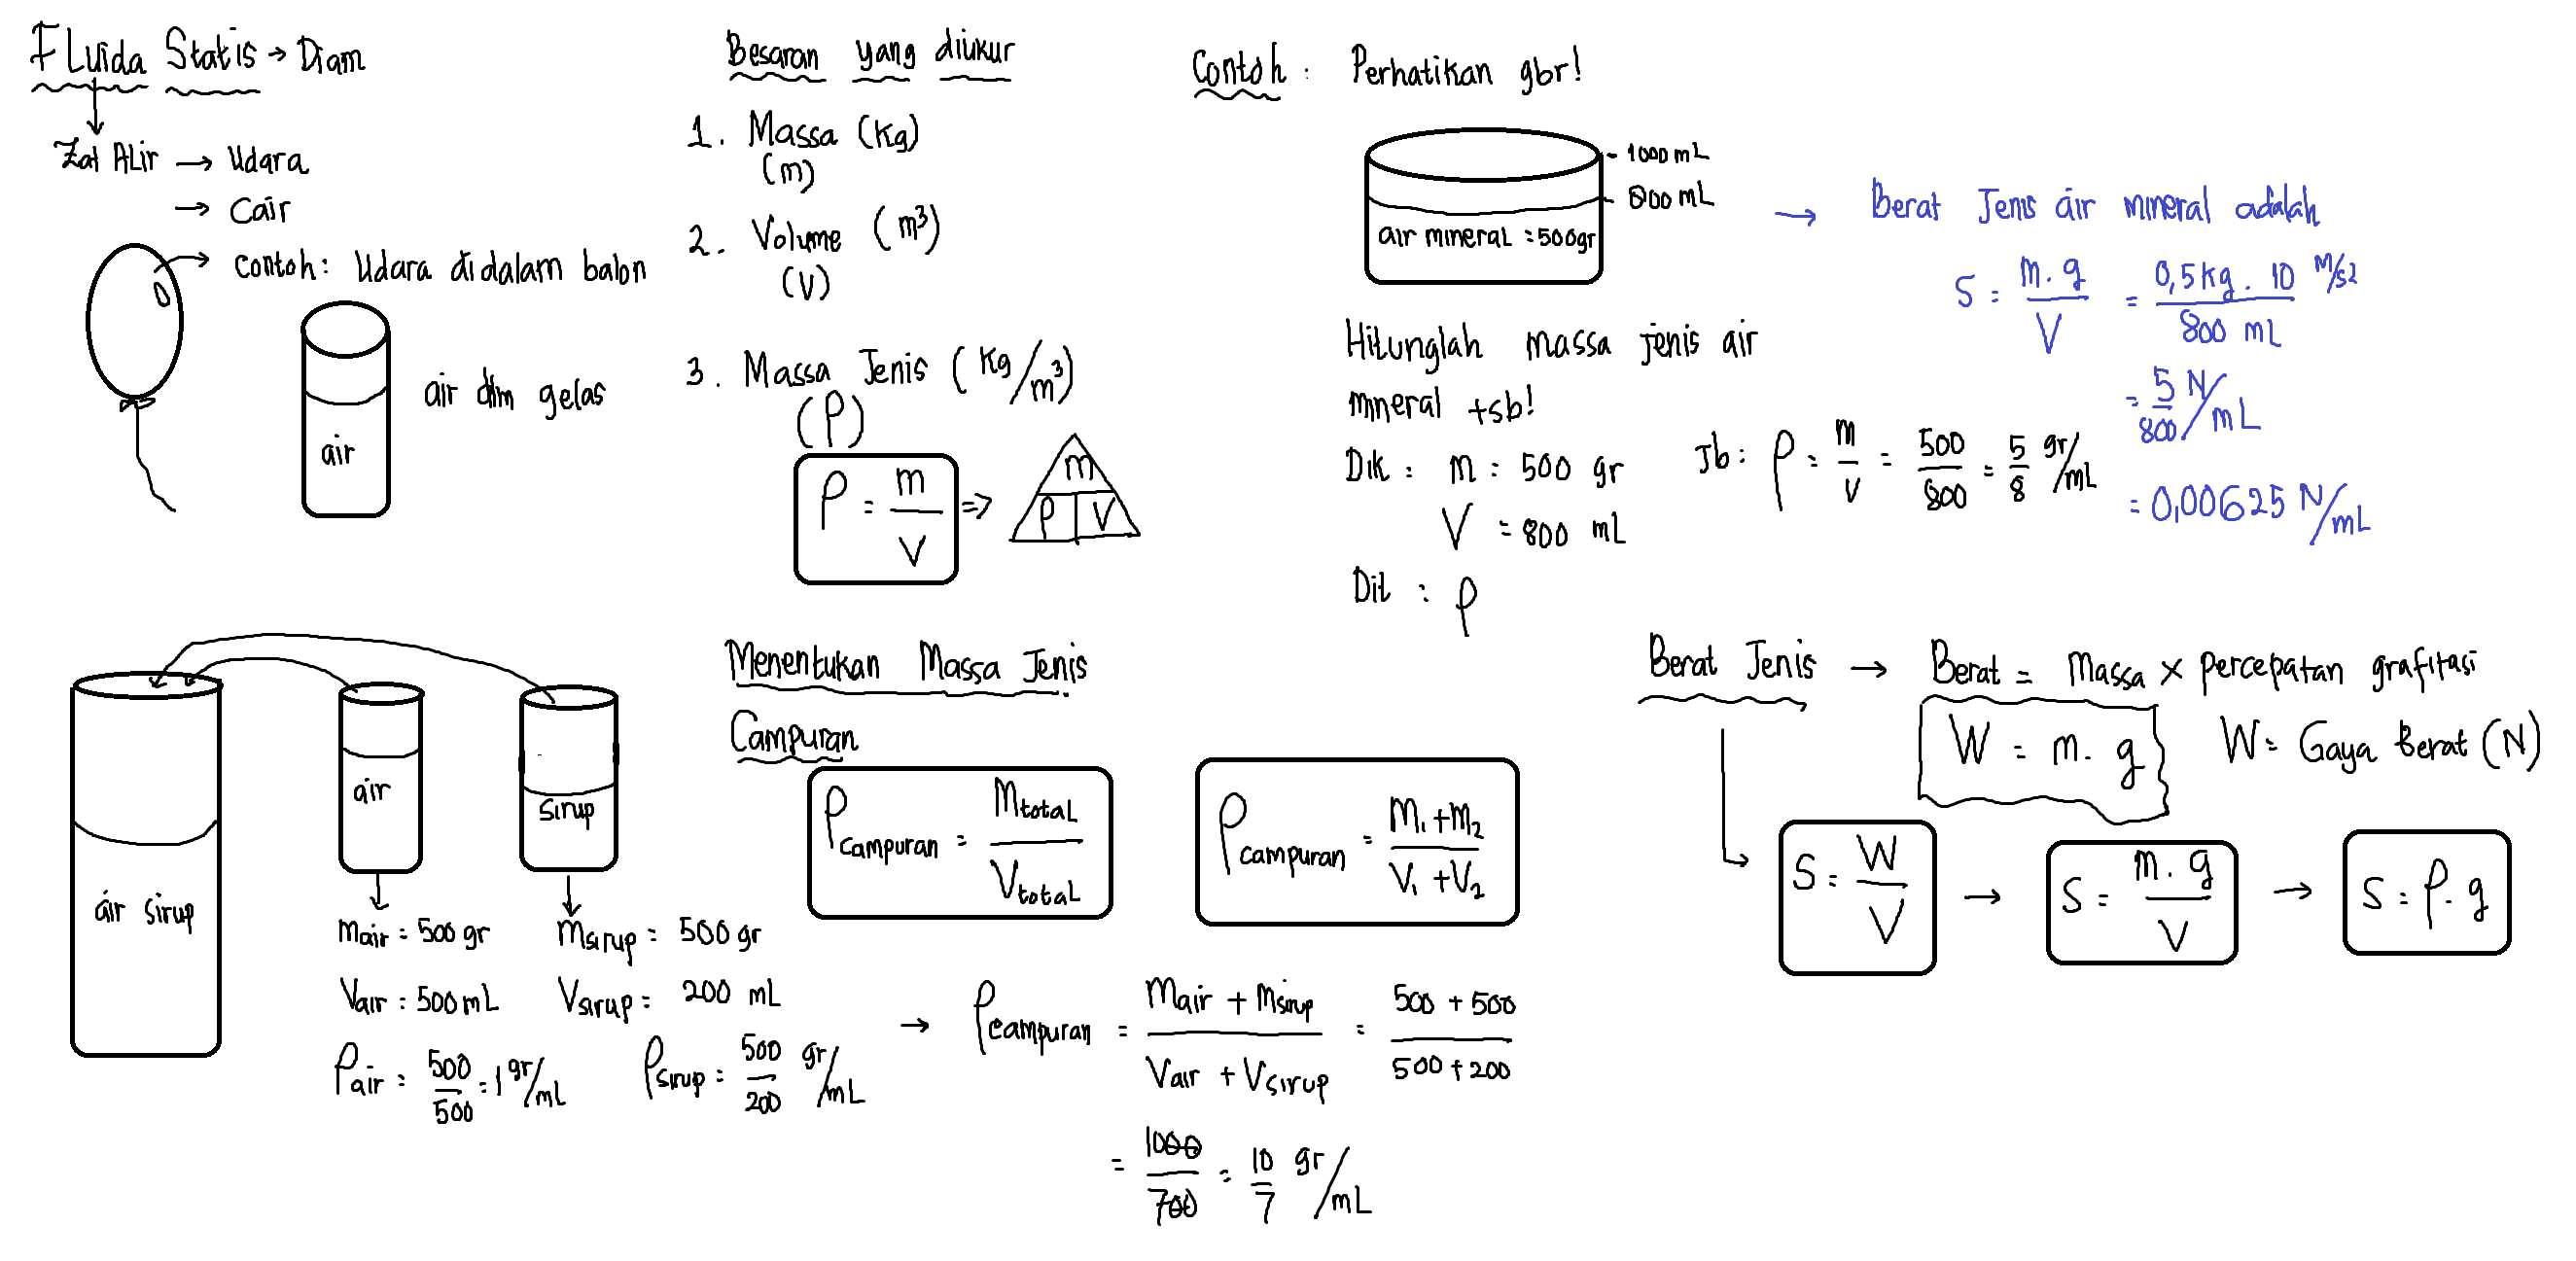 Fluida Statis → Diam
Zat Alir → Udara
→ Cair
contoh: Udara didalam balon
air dlm gelas
air
Besaran yang diukur
1. Massa (Kg)
(m)
2. Volume (m³)
(V)
3. Massa Jenis (Kg/m³)
(ρ)
ρ = m/V ⇒
m
ρ V
Contoh : Perhatikan gbr!
1000 mL
800 mL
air mineral = 500gr
Hitunglah massa jenis air
mineral tsb!
Dik : m = 500 gr
V = 800 mL
Dit : ρ
Jb : ρ = m/V = 500/800 = 5/8 gr/mL
→ Berat Jenis air mineral adalah
S = m.g/V = 0,5 kg . 10 m/s²/800 mL
= 5/800 N/mL
= 0,00625 N/mL
air sirup
air
sirup
mair = 500 gr
Vair = 500 mL
ρair = 500/500 = 1 gr/mL
msirup = 500 gr
Vsirup = 200 mL
ρsirup = 500/200 gr/mL
Menentukan Massa Jenis
Campuran
ρcampuran = Mtotal/Vtotal
ρcampuran = m₁+m₂/V₁+V₂
→ ρcampuran = mair + msirup/Vair + Vsirup = 500 + 500/500 + 200
= 1000/700 = 10/7 gr/mL
Berat Jenis → Berat = Massa × percepatan grafitasi
W = m. g
W = Gaya Berat (N)
S = W/V → S = m. g/V → S = ρ. g